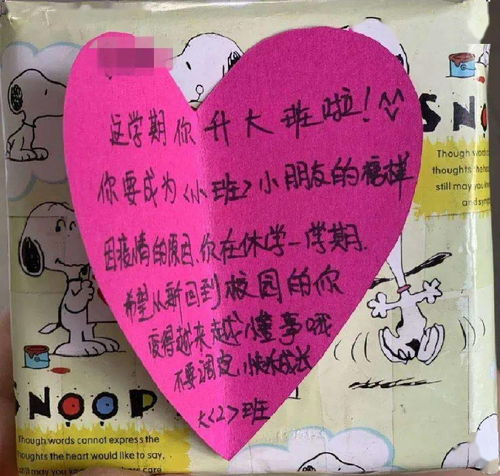 这学期你升大班啦！^^
你要成为<小班>小朋友的榜样
因疫情的原因,你在休学一学期.
希望从新回到校园的你
变得越来越懂事哦
不要调皮,成长
大<2>班
SNO
Though words
thoughts the hea
still may you
and symp
SNOOP
Though words cannot express the
thoughts the heart would like to say,
still may you
care